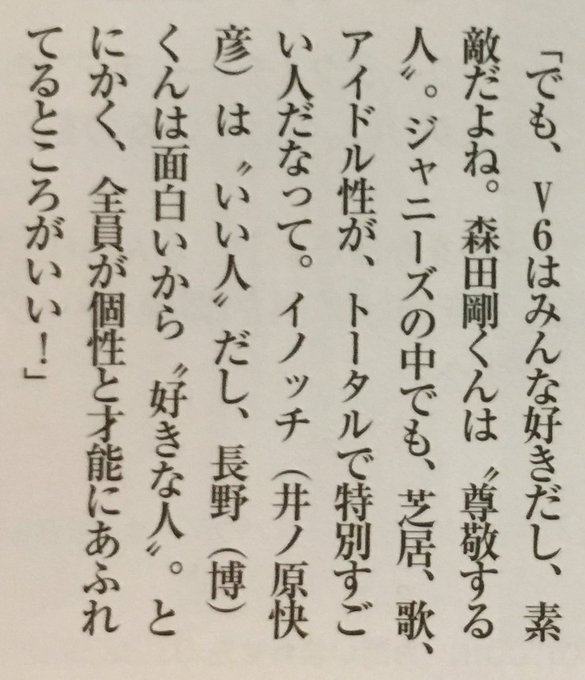 「でも、V6はみんな好きだし、素
敵だよね。森田剛くんは〝尊敬する
人〟。ジャニーズの中でも、芝居、歌、
アイドル性が、トータルで特別すご
い人だなって。イノッチ（井ノ原快
彦）は〝いい人〟だし、長野（博）
くんは面白いから〝好きな人〟。と
にかく、全員が個性と才能にあふれ
てるところがいい！」